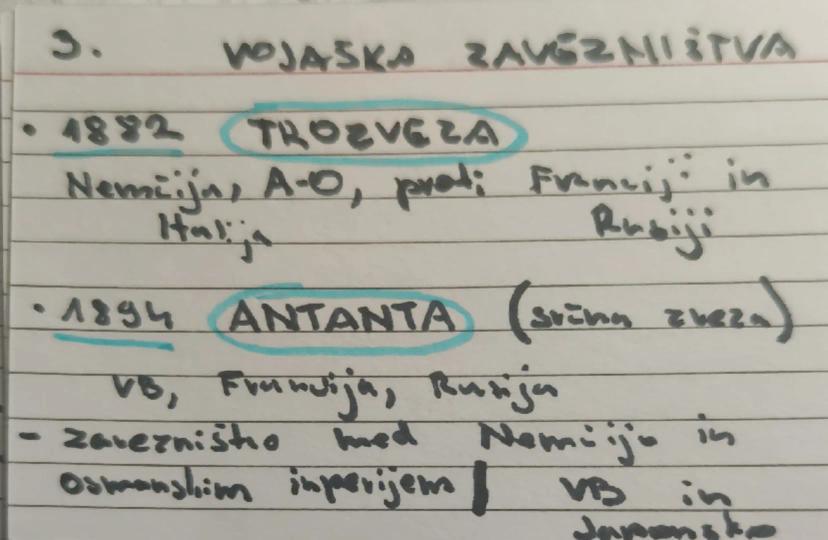 9. VOJAŠKA ZAVEZNIŠTVA
• 1882 TROZVEZA
Nemčija, A-O, proti Franciji in
Italija Rusiji
• 1894 ANTANTA (srčna zveza)
VB, Francija, Rusija
- zavezništvo med Nemčijo in
osmanskim inperijem | VB in
Japonsko